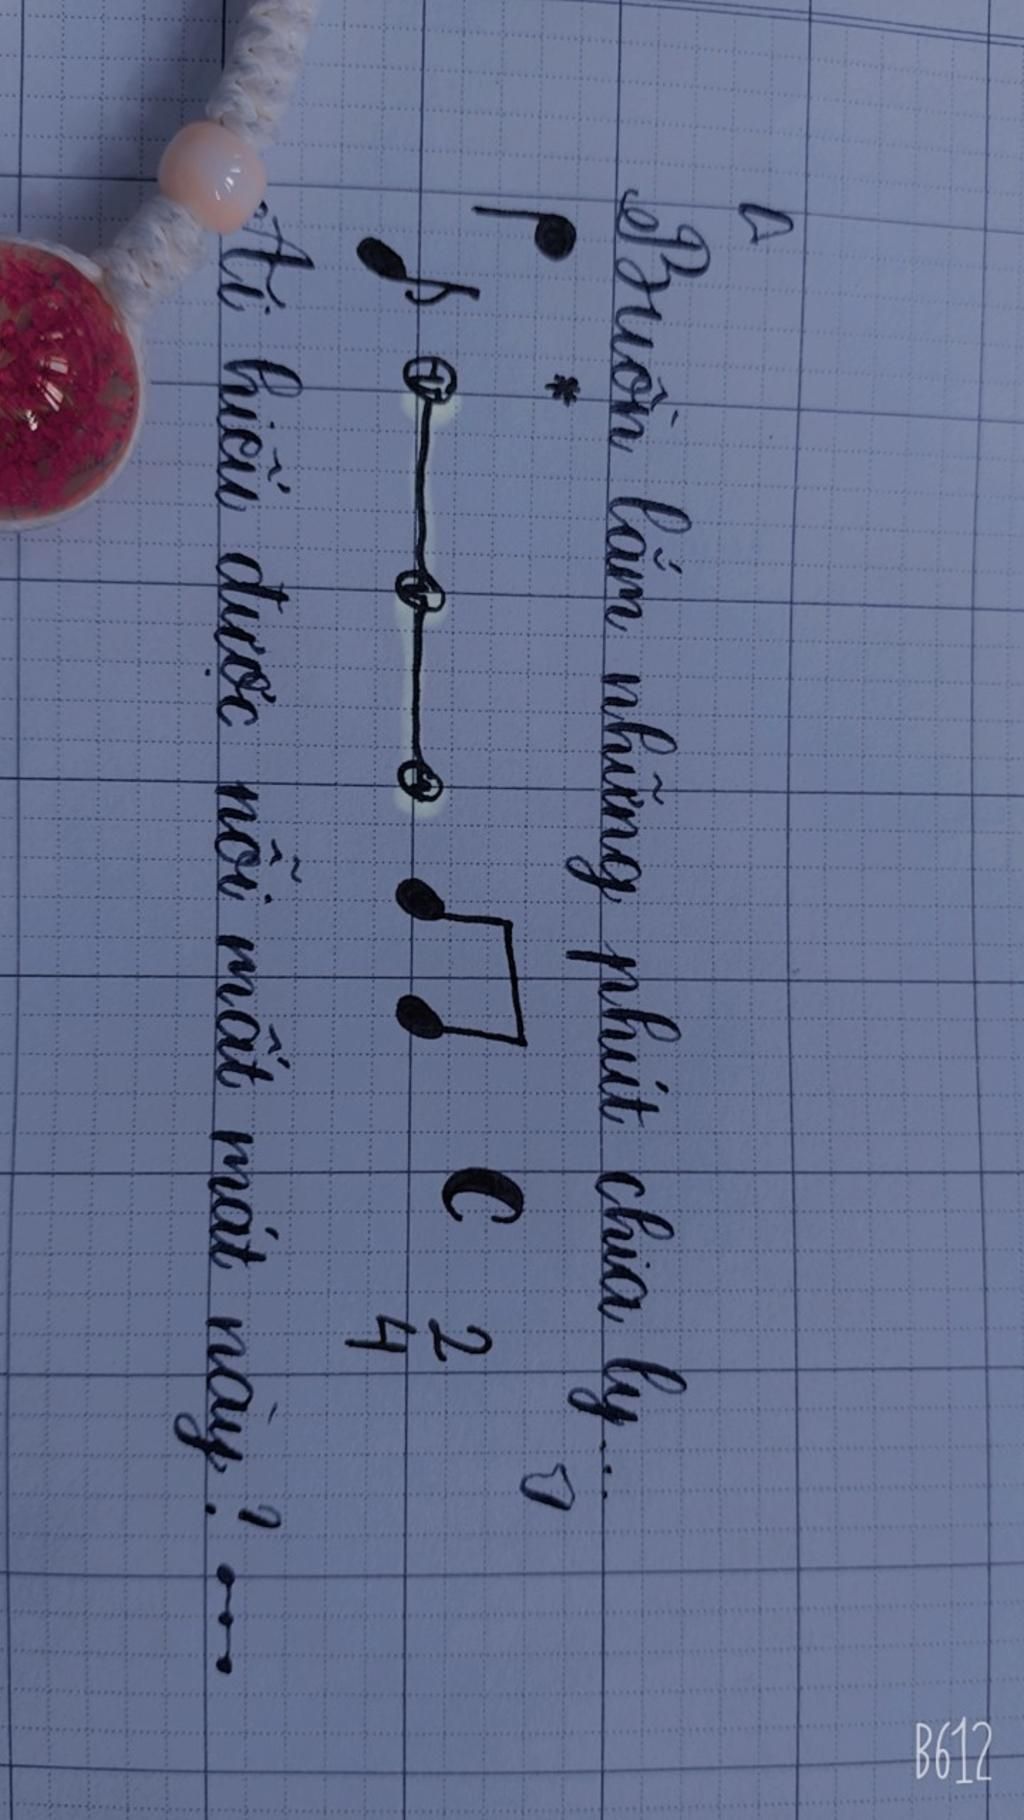 Buồn lắm những phút chia ly...
C 2
4
Ai hiểu được nỗi mất mát này!?...
B612